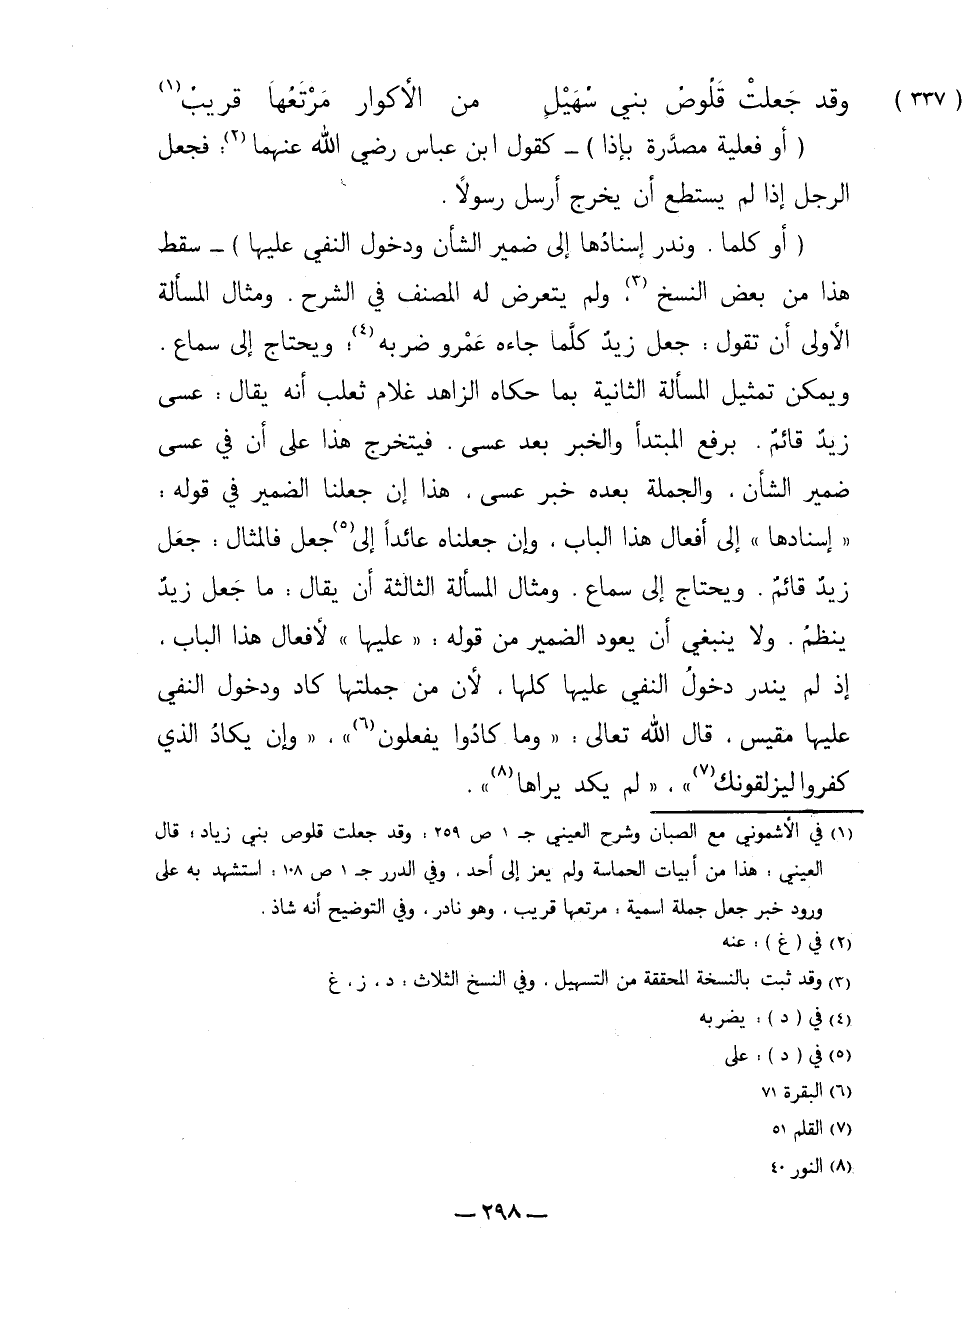 (٣٣٧) وقد جَعلتْ قَلُوصُ بني سُهَيْلٍ من الأكوار مَرْتَعُها قريبُ(١)
( أو فعلية مصدَّرة بإذا ) ــ كقول ابن عباس رضي الله عنهما(٢): فجعل
الرجل إذا لم يستطع أن يخرج أرسل رسولاً .
( أو كلما . وندر إسنادُها إلى ضمير الشأن ودخول النفي عليها ) ــ سقط
هذا من بعض النسخ(٣)، ولم يتعرض له المصنف في الشرح . ومثال المسألة
الأولى أن تقول : جعل زيدٌ كلَّما جاءه عَمْرو ضربه(٤)؛ ويحتاج إلى سماع .
ويمكن تمثيل المسألة الثانية بما حكاه الزاهد غلام ثعلب أنه يقال : عسى
زيدٌ قائمٌ . برفع المبتدأ والخبر بعد عسى . فيتخرج هذا على أن في عسى
ضمير الشأن ، والجملة بعده خبر عسى ، هذا إن جعلنا الضمير في قوله :
« إسنادها » إلى أفعال هذا الباب ، وإن جعلناه عائداً إلى(٥) جعل فالمثال : جعَل
زيدٌ قائمٌ . ويحتاج إلى سماع . ومثال المسألة الثالثة أن يقال : ما جَعل زيدٌ
ينظمُ . ولا ينبغي أن يعود الضمير من قوله : « عليها » لأفعال هذا الباب ،
إذ لم يندر دخولُ النفي عليها كلها ، لأن من جملتها كاد ودخول النفي
عليها مقيس ، قال الله تعالى : « وما كادُوا يفعلون(٦)» ، « وإن يكادُ الذي
كفروا ليزلقونك(٧)» ، « لم يكد يراها(٨)» .
(١) في الأشموني مع الصبان وشرح العيني جـ ١ ص ٢٥٩ : وقد جعلت قلوص بني زياد ؛ قال
العيني : هذا من أبيات الحماسة ولم يعز إلى أحد ، وفي الدرر جـ ١ ص ١٠٨ : استشهد به على
ورود خبر جعل جملة اسمية : مرتعها قريب ، وهو نادر ، وفي التوضيح أنه شاذ .
(٢) في ( غ ) : عنه
(٣) وقد ثبت بالنسخة المحققة من التسهيل ، وفي النسخ الثلاث : د ، ز ، غ
(٤) في ( د ) : يضربه
(٥) في ( د ) : على
(٦) البقرة ٧١
(٧) القلم ٥١
(٨) النور ٤٠
ــ ٢٩٨ ــ